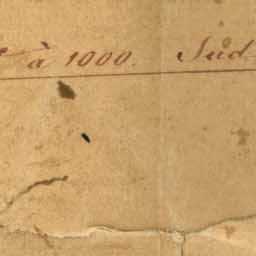 à 1000. Sud